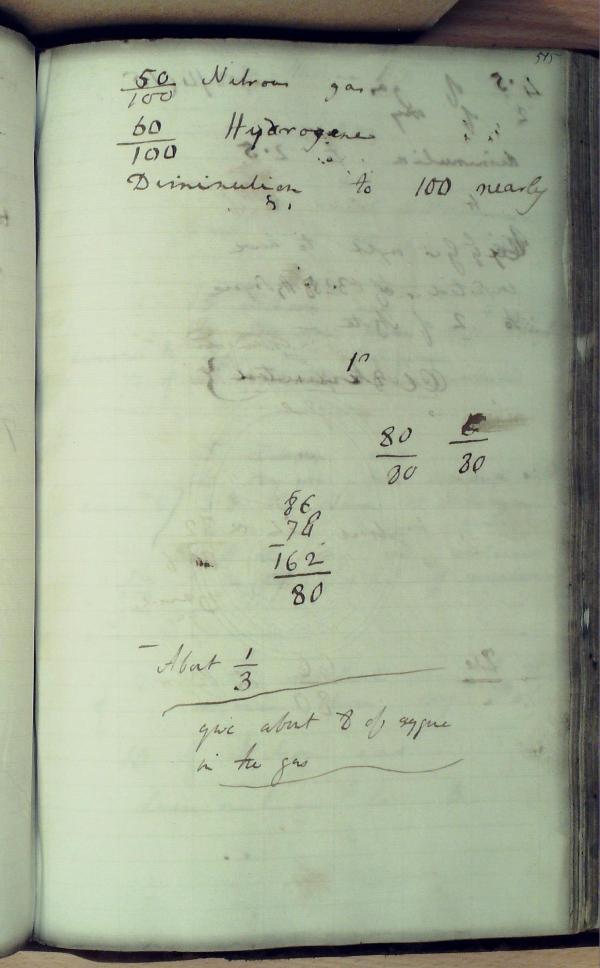 515
50/100 Nitrous gas
60/100 Hydrogene
Diminution to 100 nearly
80/30
/30
86
74
162
80
- About 1/3
give about 8 of
in the gas